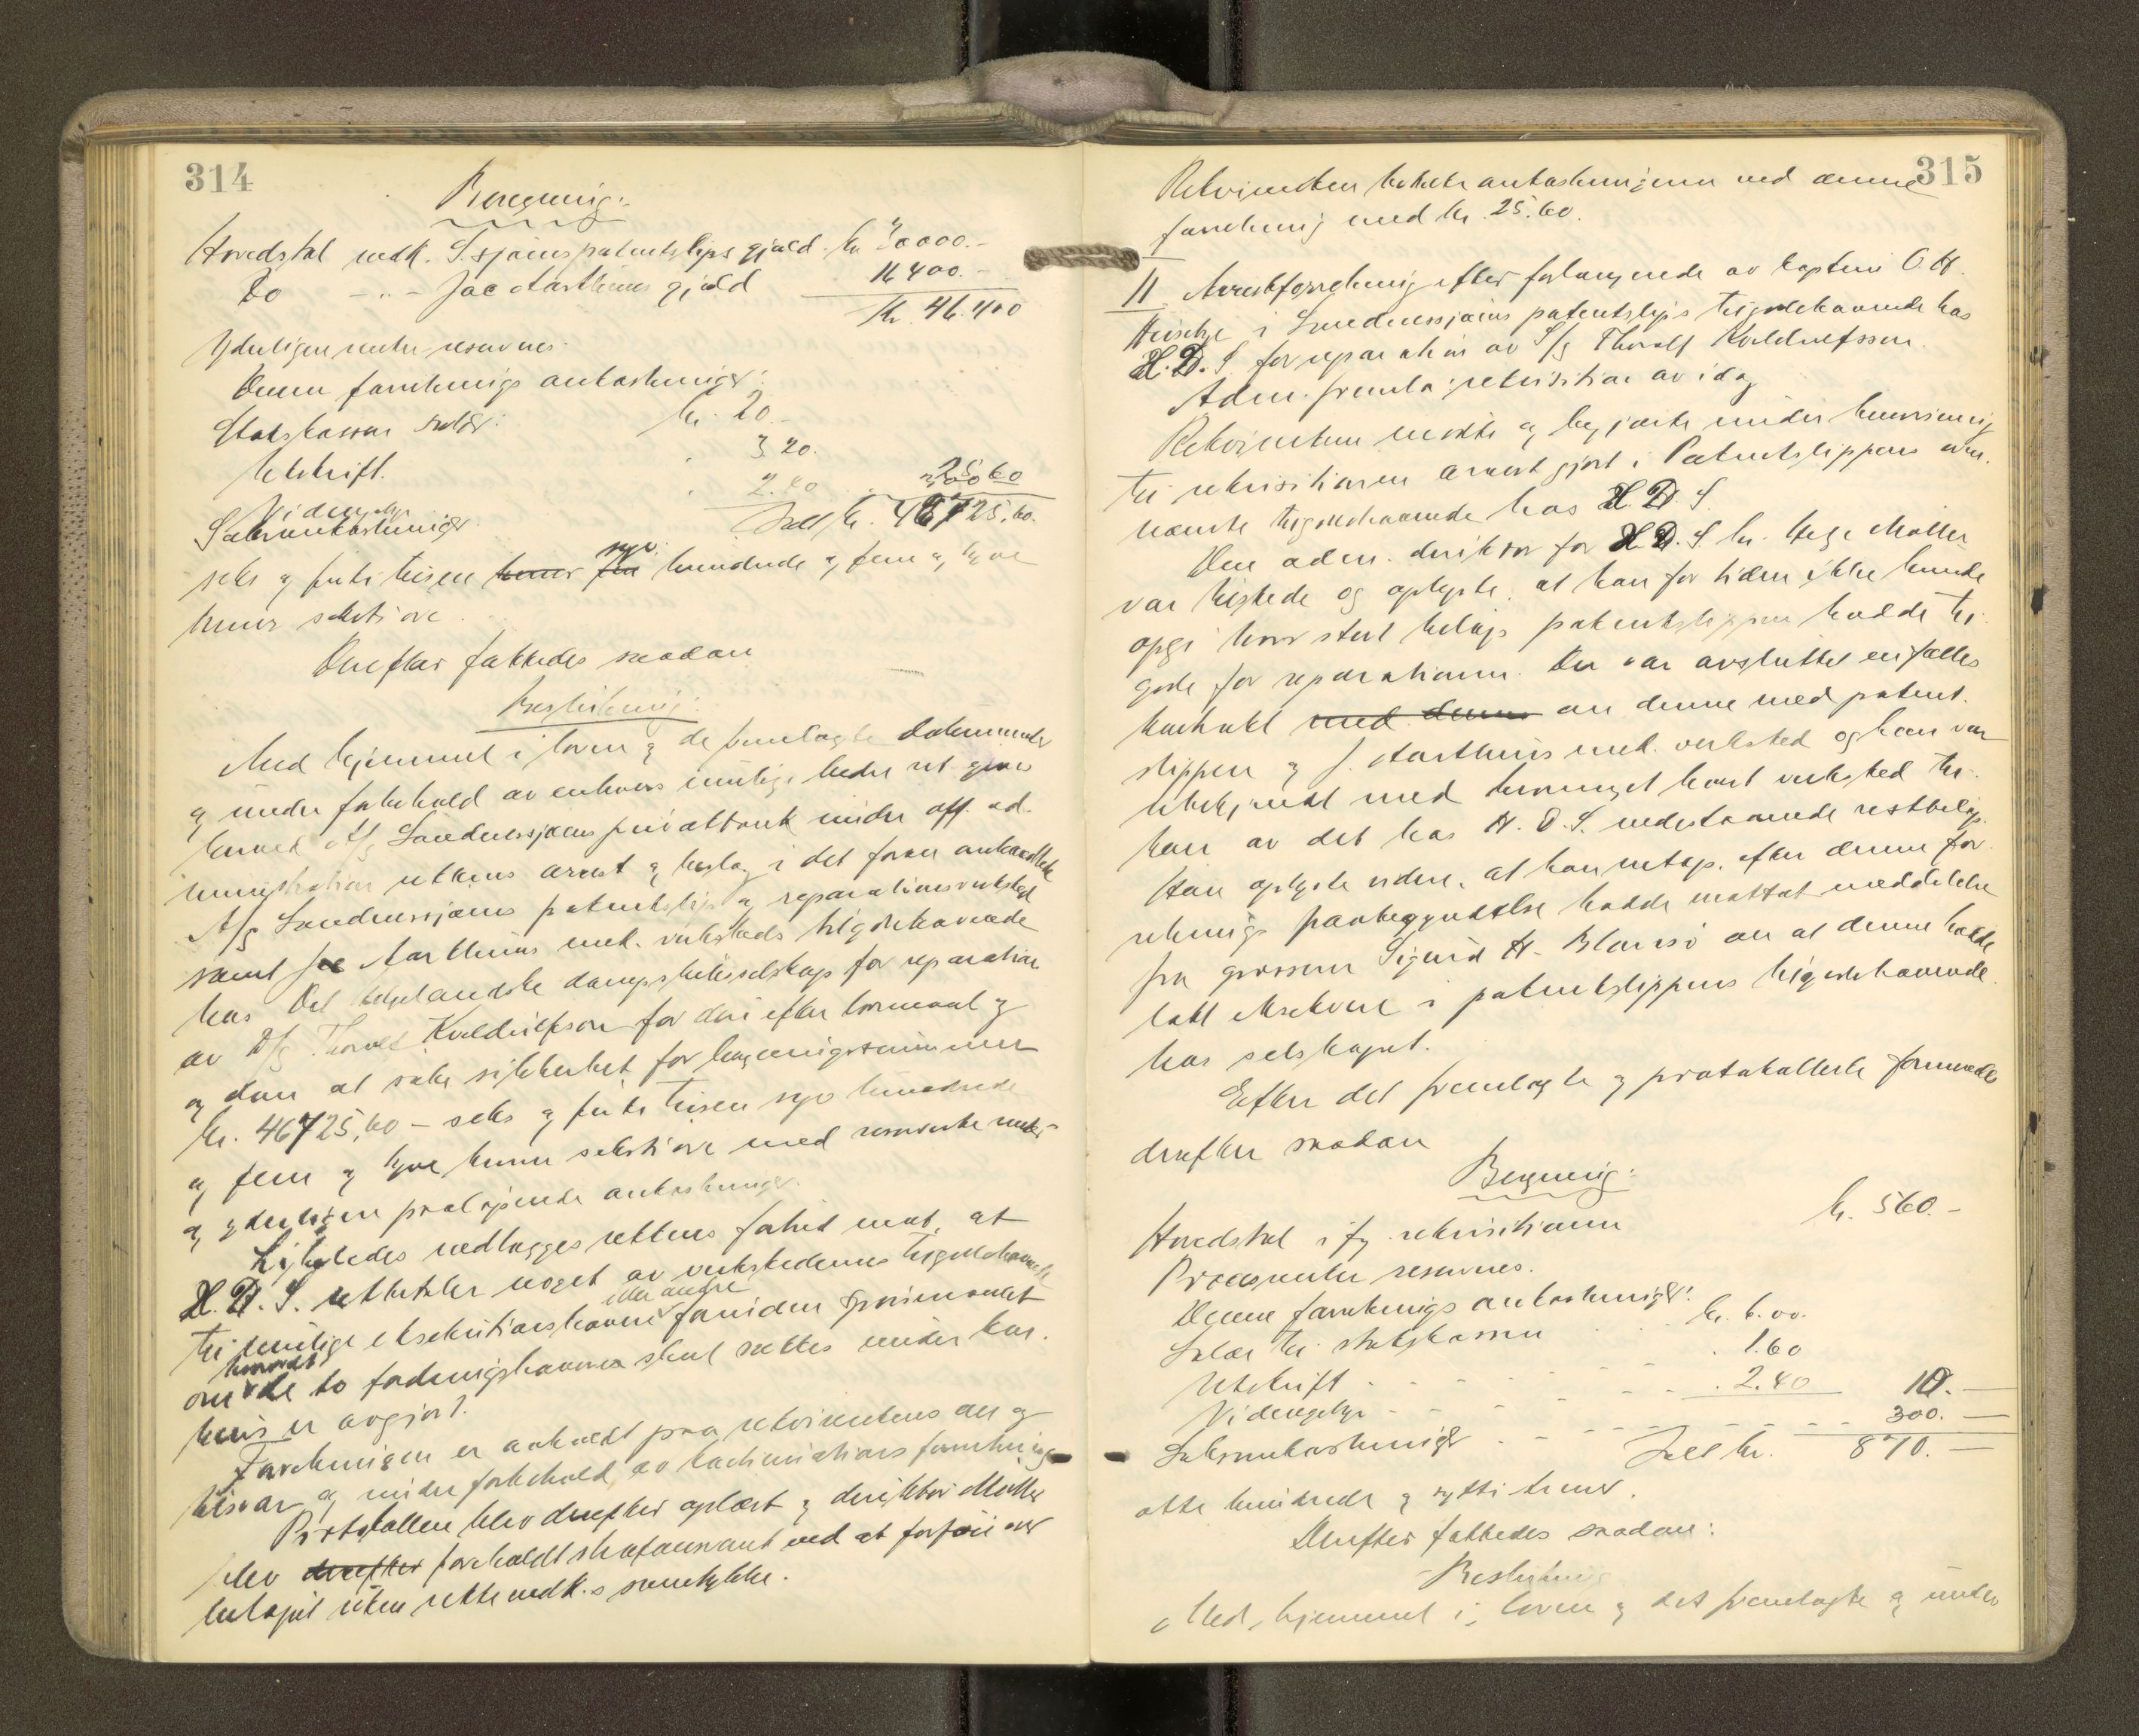 314
Beregning:
Hovedstol vedk. S.sjøens patentslips gjæld kr 30000.-
Do -"- Jac Aarthuns gjæld 16400.-
Kr. 46.400
Yderligere renter reserveres.
Denne forretnings omkostninger:
Statskassen salær: kr. 20.-
Utskrift. 3 20.
Videregebyr 2.40 25.60
Saksomkostninger 300
Ialt kr. 46725.60.
seks og firti tusen syv hundrede og fem og tyve
kroner seksti øre.
Derefter fattedes saadan
Beslutning:
Med hjemmel i loven og de fremlagte dokumenter
og under forbehold av enhvers mulige bedre ret gives
herved A/S Sandnessjøens privatbank under off. ad-
ministration rettens arrest og beslag i det foran omhandlede
A/S Sandnessjøens patentslip og reparationsverksted
samt Jac Aarthuns mek. verksteds tilgodehavende
hos Det helgelandske dampskibsselskap for reparation
av D/S Thorolf Kveldulfson for deri efter lovmaal og
og dom at søke sikkerhet for beregningssummen
kr. 46725,60 - seks og firti tusen syv hundrede
og fem og tyve kroner seksti øre med reserverte renter
og yderligere paaløpende omkostninger.
Likeledes nedlægges rettens forbud mot, at
H.D.S. utbetaler noget av verkstedernes tilgodehavende
til mulige eksekutionshavere eller andre forinden spørsmaalet
om hvorvidt de to fordringshavere skal sættes under kon-
kurs er avgjort.
Forretningen er avholdt paa rekvirentens an og
tilsvar og under forbehold av kontinuations forretning
Protokollen blev derefter oplæst og direktør Møller
blev foreholdt strafansvaret ved at forføie over
beløpet uten rette vedk.s samtykke.
315
Rekvirenten betalte omkostningerne ved denne
forretning med kr. 25.60.
11 Arrestforretning efter forlangende av kaptein O.H.
i Sandnessjøens patentslips tilgodehavende hos
H.D.S. for reparation av S/S Thorolf Kveldulfsson.
Adm. fremla: rekvisition av idag
Rekvirenten møtte og begjærte under henvisning
til rekvisitionen arrest gjort i Patentslippens om-
nævnte tilgodehavende hos H.D.S.
Den adm. direktør for H.D.S. hr. Helge Møller
var tilstede og oplyste, at han for tiden ikke kunde
opgi hvor stort beløp patentslippen hadde til
gode for reparationen. Der var avsluttet en fælles
kontrakt med denne om denne med patent-
slippen og J. Aarthuns mek. verksted og han var
ubekjendt med hvormeget hvert verksted til-
kom av det hos H.D.S. nedestaaende restbeløp.
Han oplyste videre, at han netop efter denne for-
retnings paabegyndelse hadde mottat meddelelse
fra grosserer Sigurd H. om at denne hadde
latt eksekvere i patentslippens tilgodehavende
hos selskapet.
Efter det fremlagte og protokollerte formeredes
derefter saadan
Beregning:
Hovedstol ifg. rekvisitionen kr. 560.-
Procesrenter reserveres.
Denne forretnings omkostninger:
Salær til statskassen kr. 6.00.
Utskrift 1.60
Videregebyr 2.40 10.-
Saksomkostninger 300.-
Ialt kr. 870.-
otte hundrede og sytti kroner.
Derefter fattedes saadan:
Beslutning
Med hjemmel i loven og det fremlagte og under